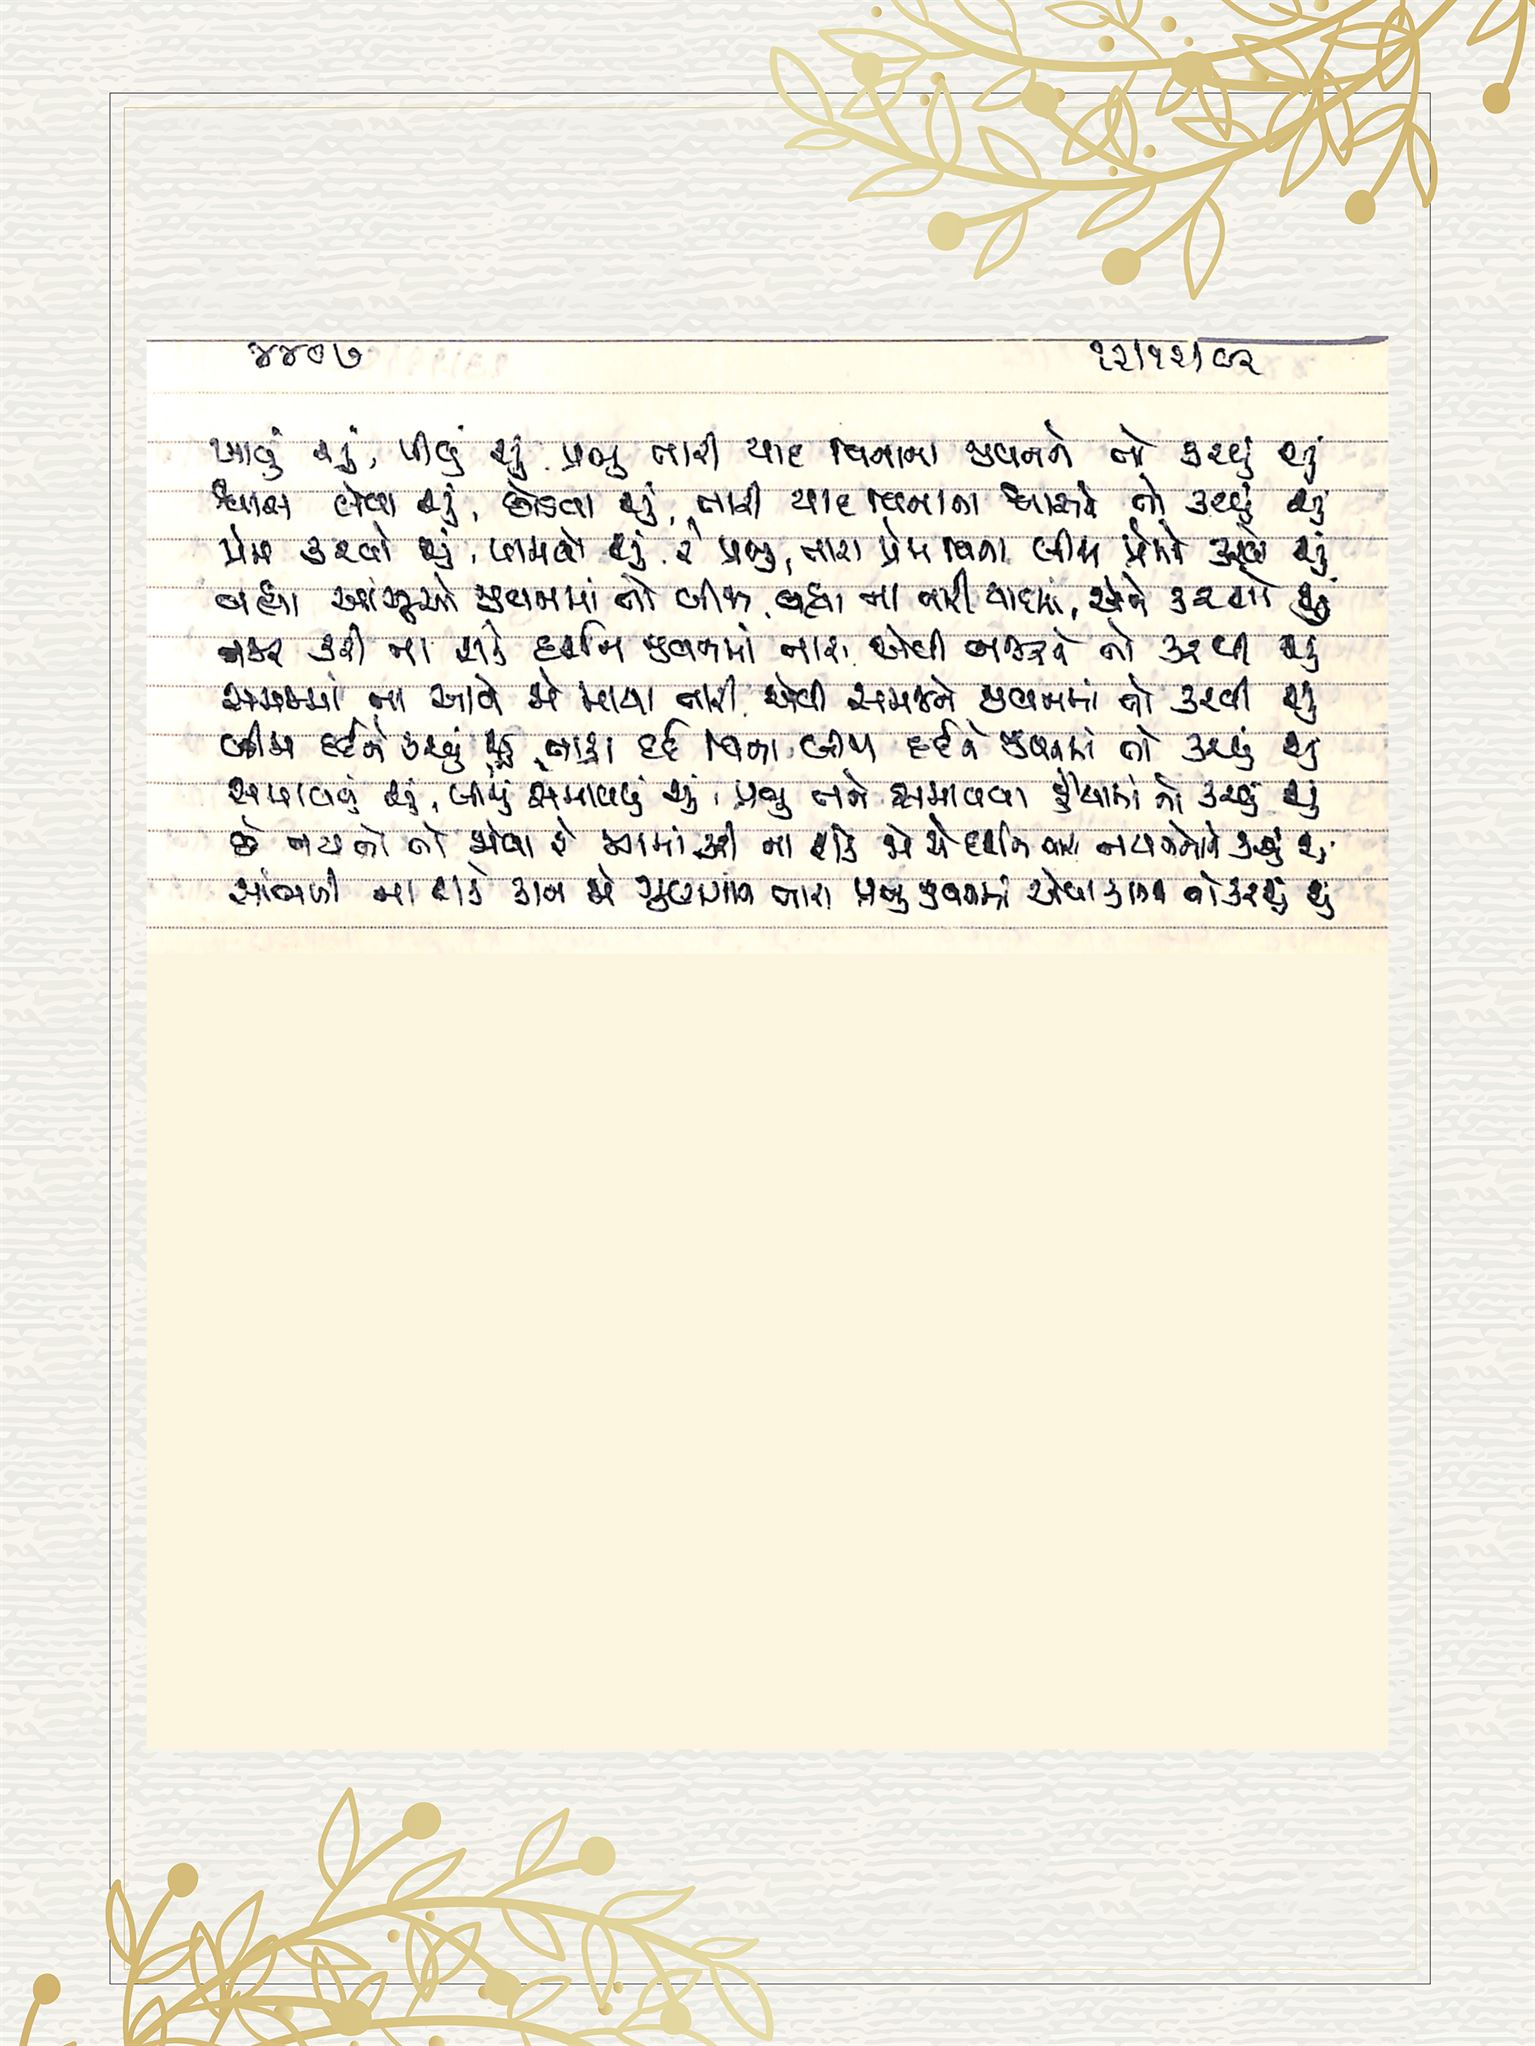 ૪૪૦૭ ૧૨/૧૨/૯૨
ખાવું શું, પીવું શું, પ્રભુ તારી યાદ વિનાના જીવનને તો કરવું શું
શ્વાસ લેવા શું, છોડવા શું, તારી યાદ વિનાના શ્વાસને તો કરવું શું
પ્રેમ કરવો શું, પામવો શું, રે પ્રભુ, તારા પ્રેમ વિના બીજા પ્રેમને કરવો શું
વહ્યા આંસુઓ જીવનમાં તો બીજા, વહ્યા ના તારી યાદમાં, એને કરવા શું
નજર કરી ના શકે દર્શન જીવનમાં તારા, એવી નજરને તો કરવી શું
સમજમાં ના આવે જો માયા તારી, એવી સમજને જીવનમાં તો કરવી શું
બીજા દર્દને કરવું શું, તારા દર્દ વિના બીજા દર્દને જીવનમાં તો કરવું શું
સમાવવું શું, બીજું સમાવવું શું, પ્રભુ તને સમાવવા હૈયામાં તો કરવું શું
છે નયનો તો એવા રે જગમાં, કરી ના શકે જો એ દર્શન તારા નયનોને કરવું શું
સાંભળી ના શકે કાન જો ગુણગાન તારા પ્રભુ જીવનમાં એવા કાનને તો કરવું શું